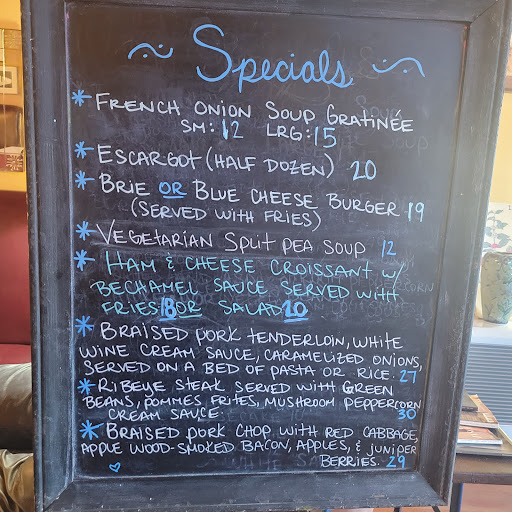 ~ Specials ~
* FRENCH ONION SOUP GRATINÉE
SM: 12 LRG: 15
* ESCARGOT (HALF DOZEN) 20
* BRIE OR BLUE CHEESE BURGER 19
(SERVED WITH FRIES)
* VEGETARIAN SPLIT PEA SOUP 12
* HAM & CHEESE CROISSANT W/
BECHAMEL SAUCE SERVED WITH
FRIES 18 OR SALAD 20
* BRAISED PORK TENDERLOIN, WHITE
WINE CREAM SAUCE, CARAMELIZED ONIONS,
SERVED ON A BED OF PASTA OR RICE. 27
* RIBEYE STEAK SERVED WITH GREEN
BEANS, POMMES FRITES, MUSHROOM PEPPERCORN
CREAM SAUCE 30
* BRAISED PORK CHOP WITH RED CABBAGE,
APPLE WOOD-SMOKED BACON, APPLES, & JUNIPER
BERRIES. 29